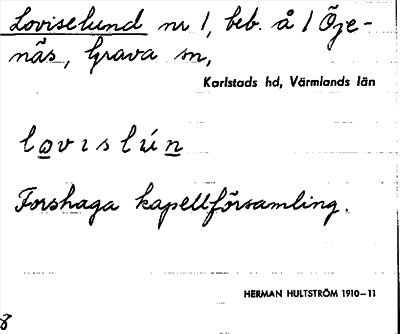 Loviselund nr 1, beb. å 1 Öje-
näs, Grava sn,
Karlstads hd, Värmlands län
lovıslún
Forshaga kapellförsamling.
HERMAN HULTSTRÖM 1910–11
8